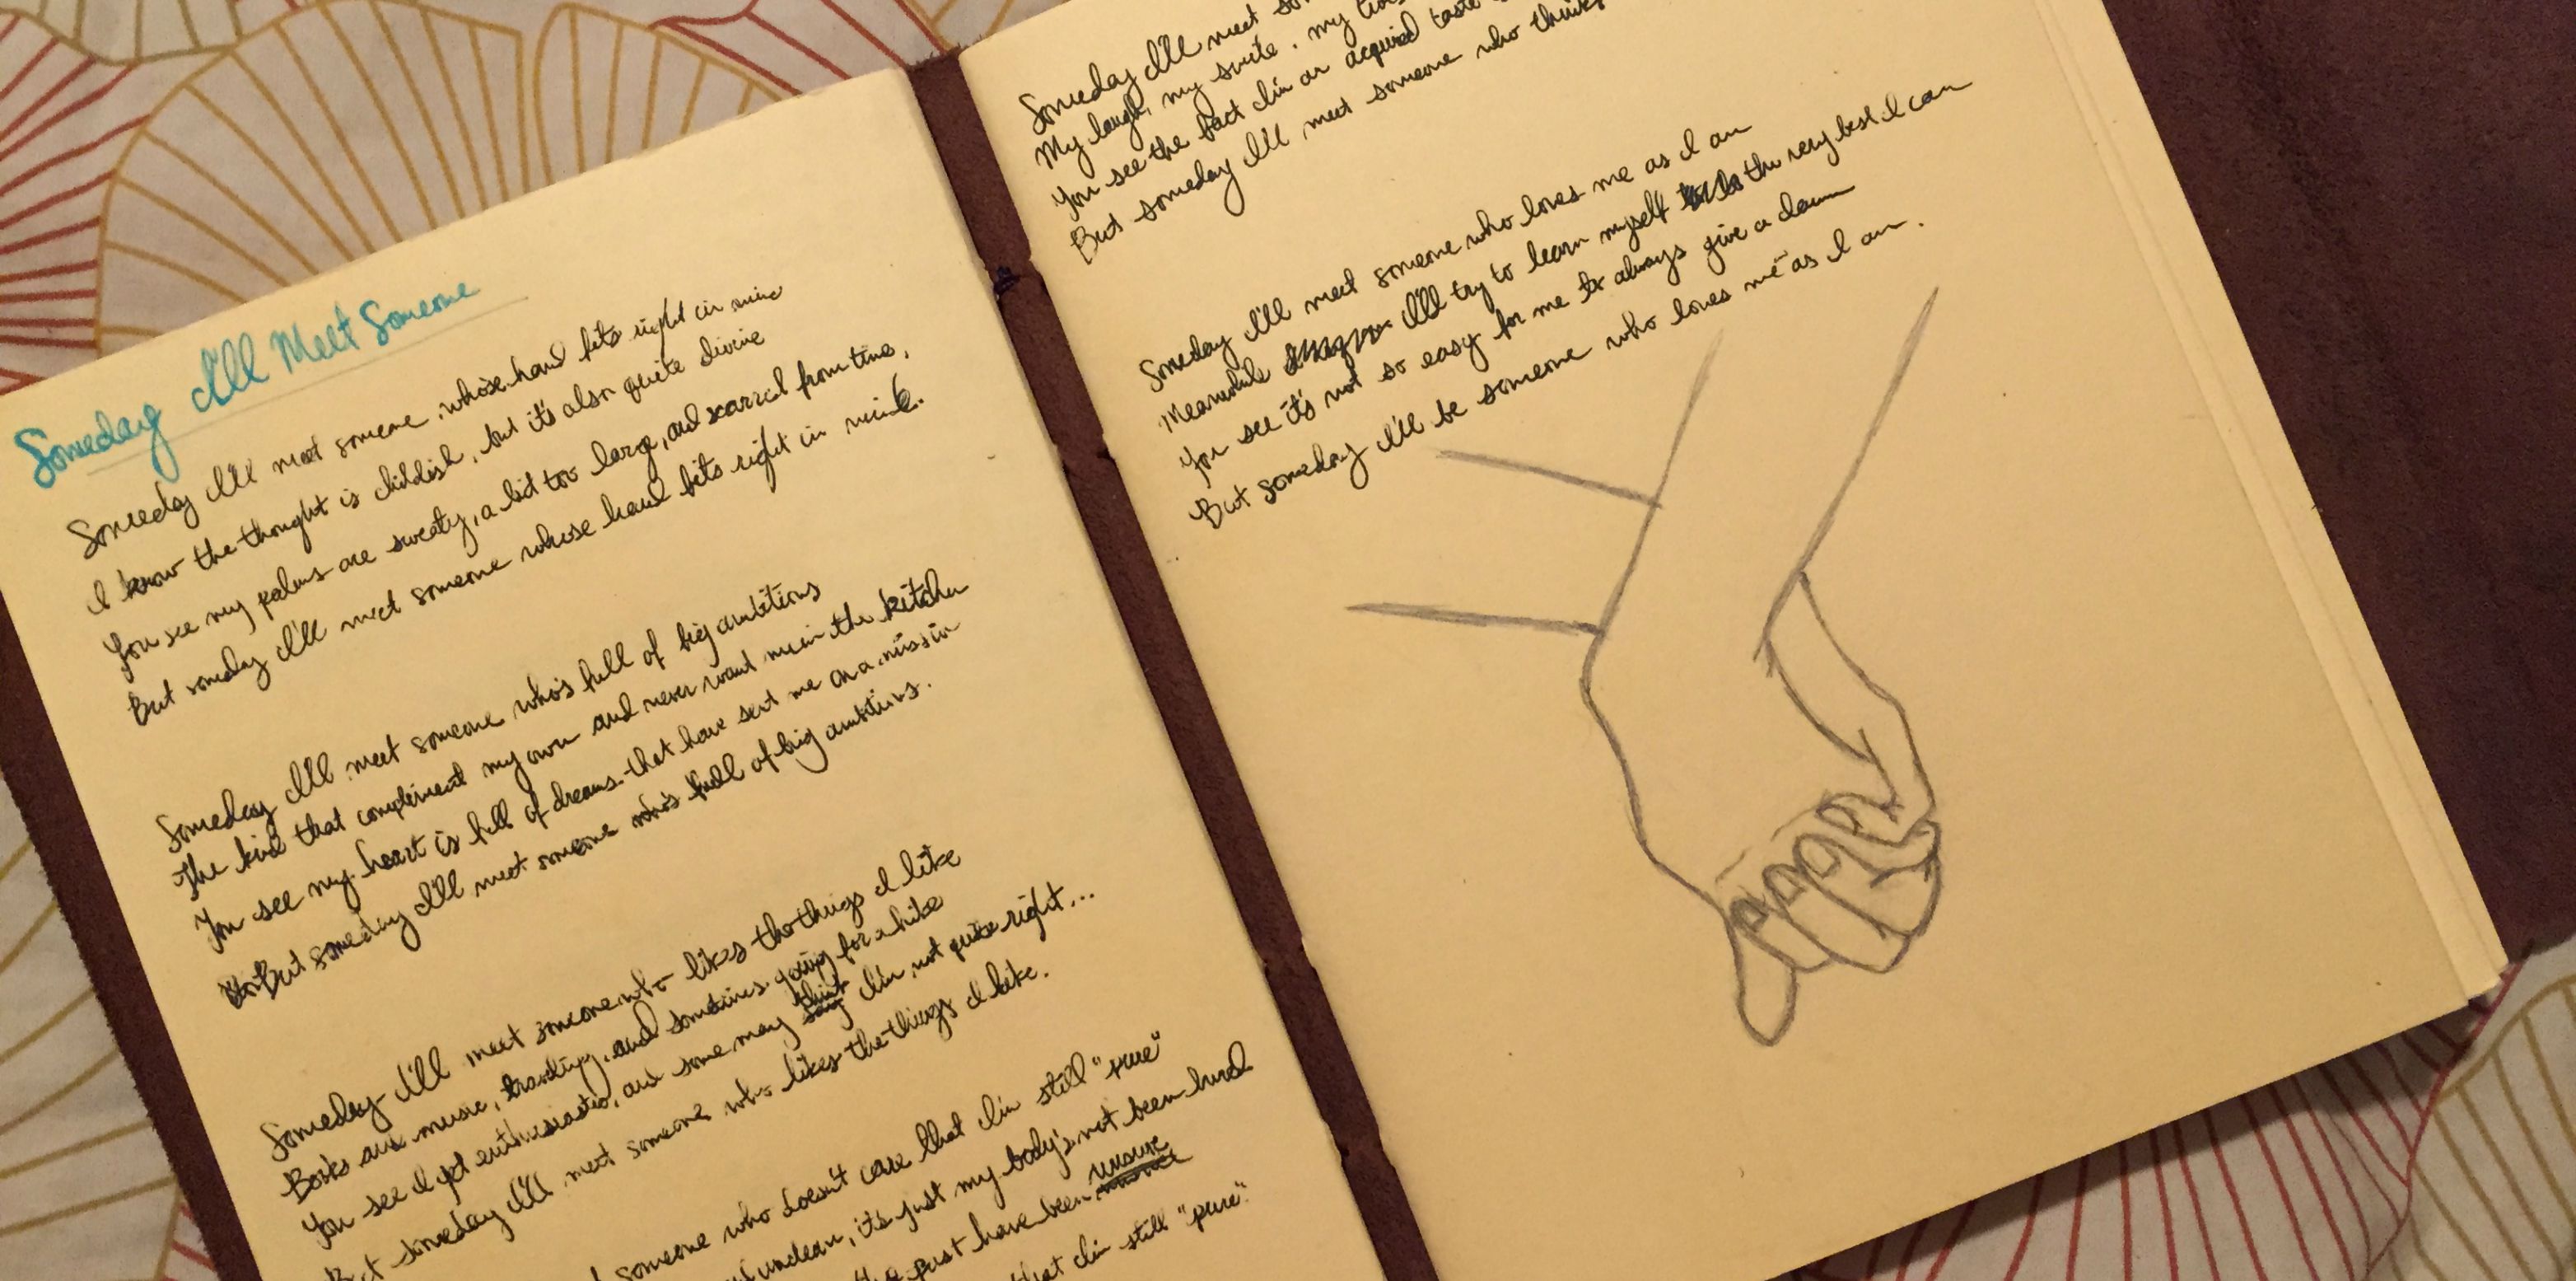 Someday I'll Meet Someone
Someday I'll meet someone, whose hand fits right in mine
I know the thought is childish, but it's also quite divine
You see my palms are sweaty, a bit too large, and scarred from time,
But someday I'll meet someone whose hand fits right in mine.
Someday I'll meet someone who's full of big ambitions
The kind that compliment my own and never want me in the kitchen
You see my heart is full of dreams that have sent me on a mission
But someday I'll meet someone who's full of big ambitions.
Someday I'll meet someone who likes the things I like
Books and music, traveling, and sometimes going for a hike
You see I get enthusiastic, and some may think I'm not quite right...
But someday I'll meet someone who likes the things I like.
someone who doesn't care that I'm still "pure"
unclean, it's just my body's not been lured
the past have been unsure
that I'm still "pure".
Someday I'll meet
My laugh, my smile, my
You see the fact I'm an acquired taste
But someday I'll meet someone who thinks
Someday I'll meet someone who loves me as I am
Meanwhile I'll try to learn myself the very best I can
You see it's not so easy for me to always give a damn
But someday I'll be someone who loves me as I am.